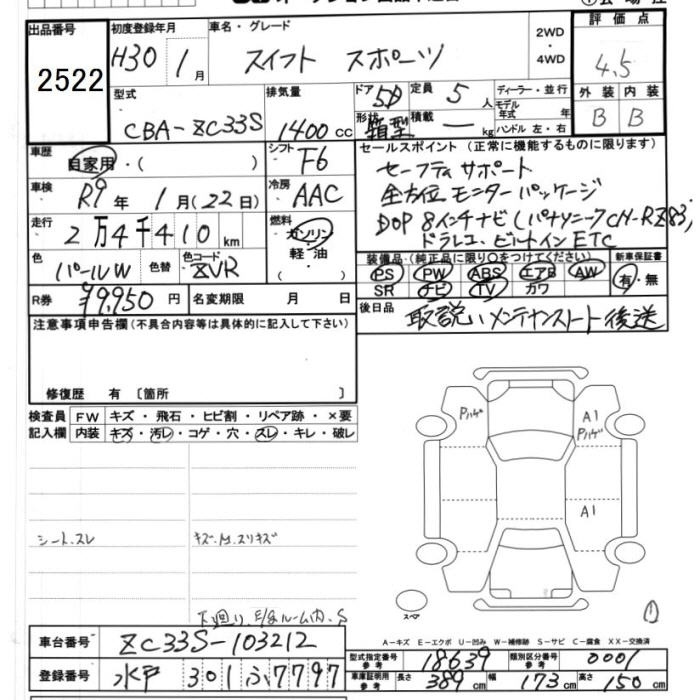 出品番号 初度登録年月 車名・グレード 2WD ・ 4WD 評価点
2522 H30 1月 スイフト スポーツ 4.5
型式 排気量 ドア 5D 定員 5人 ディーラー・並行 外装 内装
CBA-ZC33S 1400cc 形状 箱型 積載 ー kg モデル年式 年 ハンドル 左・右 B B
車歴 自家用・( ) シフト F6 セールスポイント (正常に機能するものに限ります)
車検 R9年 1月(22日) 冷房 AAC セーフティ サポート
全方位モニターパッケージ
走行 2万4千410km 燃料 ガソリン・軽油 DOP 8インチナビ(パナソニックCN-RZ83)
ドラレコ、ビルトインETC
色 パールW 色替 色コード ZVR 装備品(純正品に限り○をつけてください) 新車保証書
PS PW ABS エアB AW 有・無
SR ナビ TV カワ
R券 ¥9,950円 名変期限 月 日 後日品 取説、メンテナンスノート後送
注意事項申告欄(不具合内容等は具体的に記入して下さい)
修復歴 有 〔箇所 〕
検査員 FW キズ・飛石・ヒビ割・リペア跡・×要
記入欄 内装 キズ・汚レ・コゲ・穴・スレ・キレ・破レ
Pハゲ A1
Pハゲ
A1
シート、スレ
下廻り、E/gルーム内、S
スペア
A-キズ E-エクボ U-凹み W-補修跡 S-サビ C-腐食 XX-交換済
車台番号 ZC33S-103212
型式指定番号 参考 18639 類別区分番号 参考 0001
登録番号 水戸 301 ふ7797 車庫証明用 参考 長さ 389cm 幅 173cm 高さ 150cm